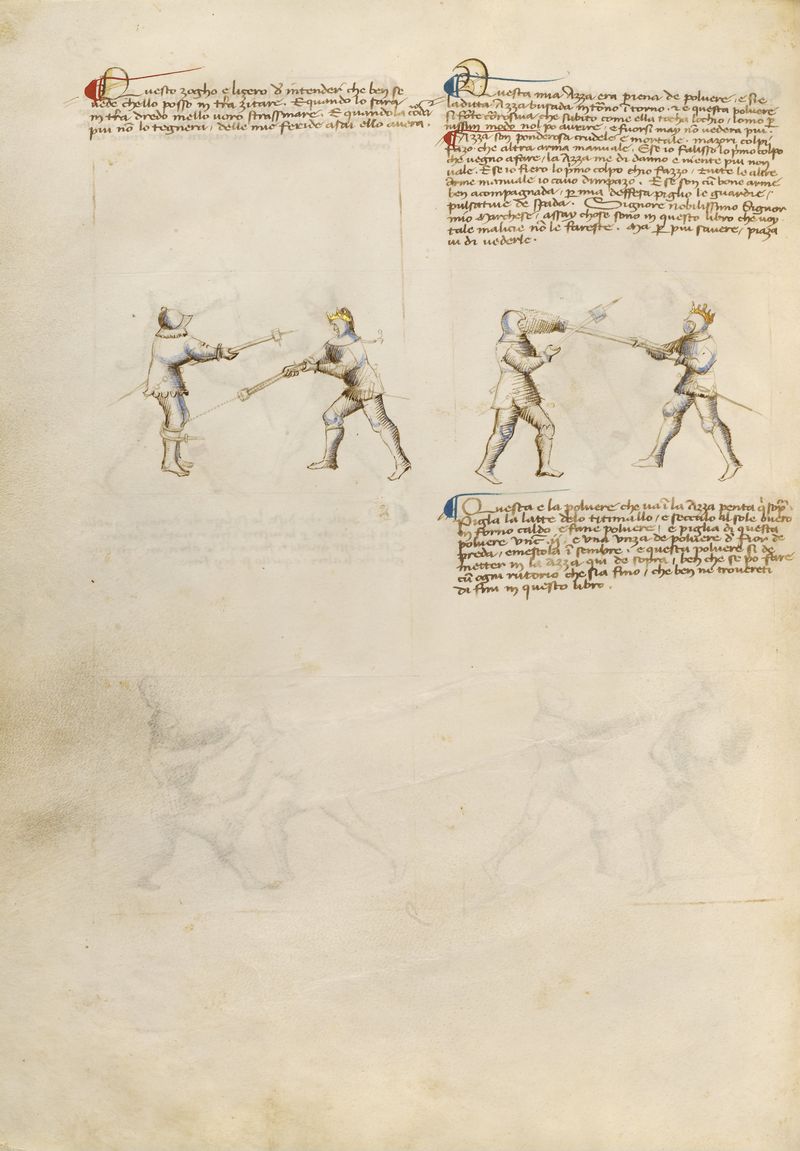 Questo zogho e ligero d intender che ben se
vede chello posso in tra zitare. E quando lo farò
in tra dredo mello voro strassinare. E quando la coda
piu no lo tegnera, delle mie feride asai ello avera.
Questa mia Azza era piena de polvere, e si e
la dita Azza busada intorno itorno. e e questa polvere
si forte corosiva, che subito come ella tocha lochio, lomo p
nissun modo nol po avrire, e fuorsi may no vedera piu.
Azza son ponderosa crudele e mortale. mazori colpi
fazo che altra arma manuale. E se io falisso lo primo colpo
che vegno a fare, la Azza me di danno e niente piu non
vale. E se io fiero lo primo colpo chio fazzo, tutte le altre
Arme manuale io cavo dimpazo. E se son cu bone arme
ben acompagnada, p mia deffesa piglio le guardie,
pulsative de spada. Signore nobilissimo Signor
mio Marchese, assay chose sono in questo libro che voy
tale malicie no le fareste. Ma p piu savere, piaza
vi di vederle.
Questa e la polvere che va i la Azza penta q sopra.
Piglia la latte delo titimallo, e seccalo al sole overo
in forno caldo e fane polvere, e piglia di questa
polvere unc ij. e una unza de polvere d fior de
preda, e mestola i sembre, e questa polvere si de
metter in la Azza qui de sopra, ben che se po fare
cu ogni rutorio che sia fino, che ben ne trovereti
di fini in questo libro.